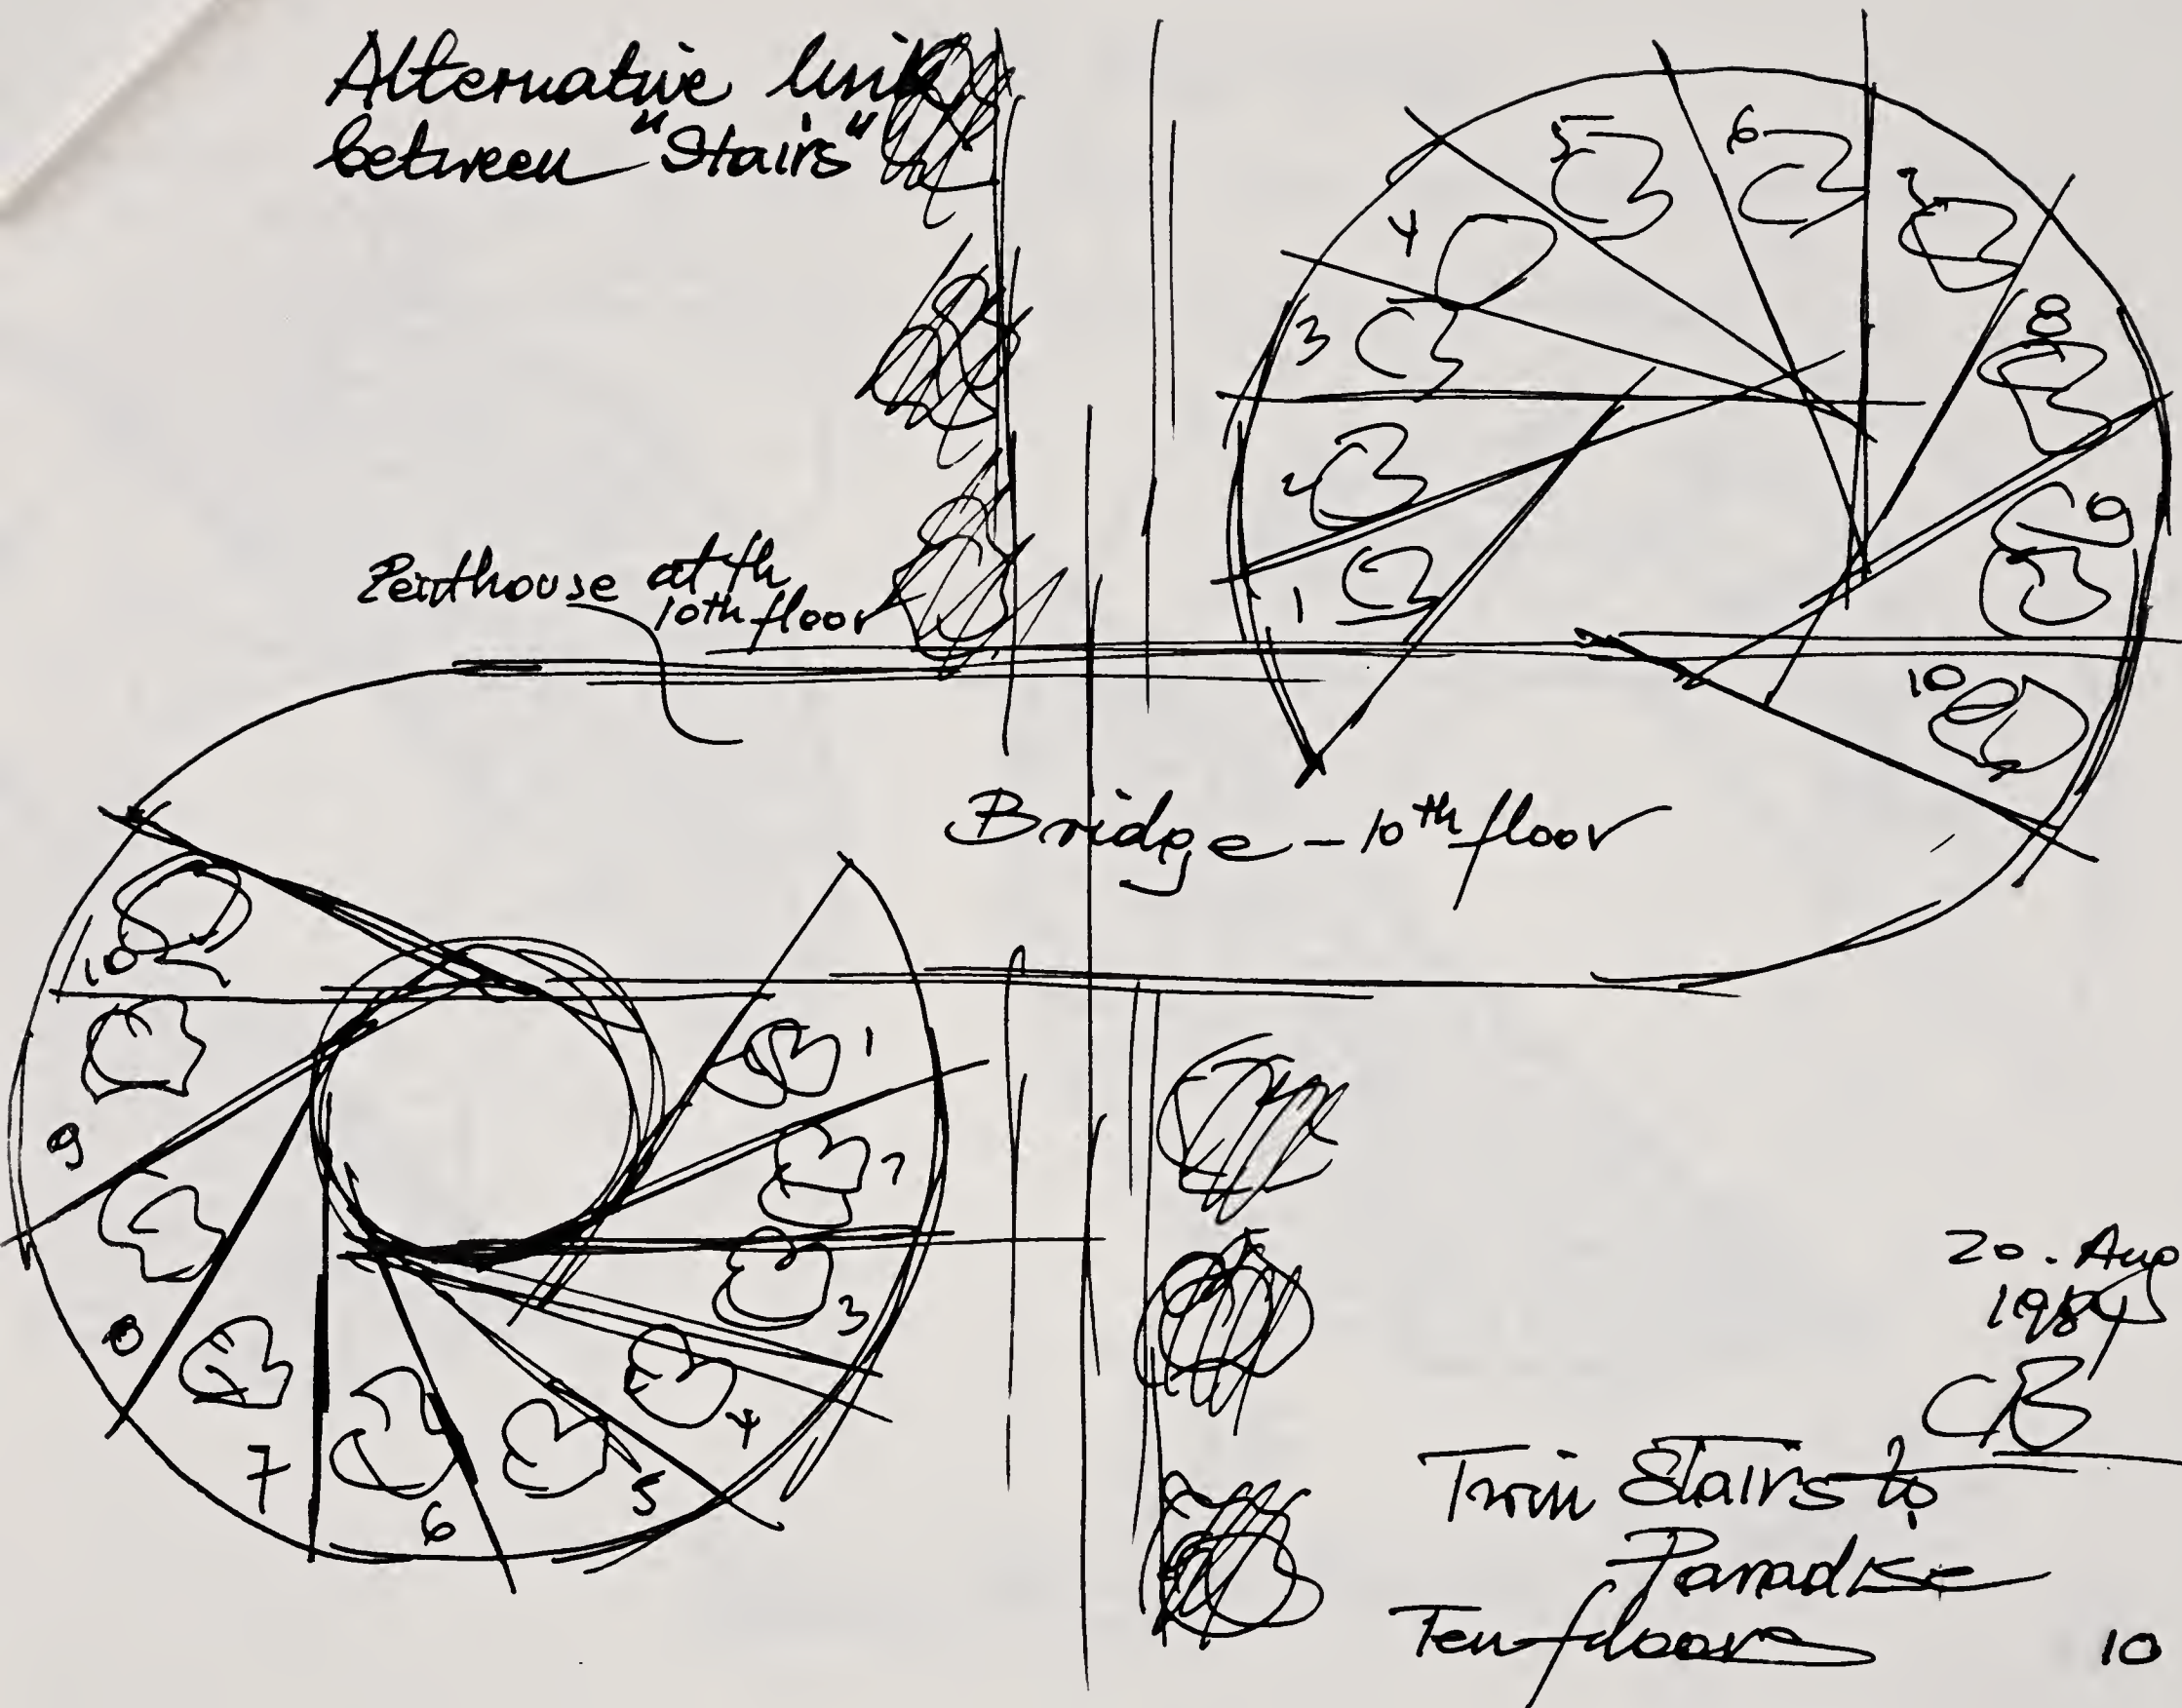 Alternative link
between "Stairs"
5
6
7
4
8
3
2
9
1
Penthouse at th
10th floor
10
Bridge - 10th floor
10
1
9
2
3
8
4
7
5
6
20. Aug
CB
Twin Stairs to
Paradise
Ten floors
10